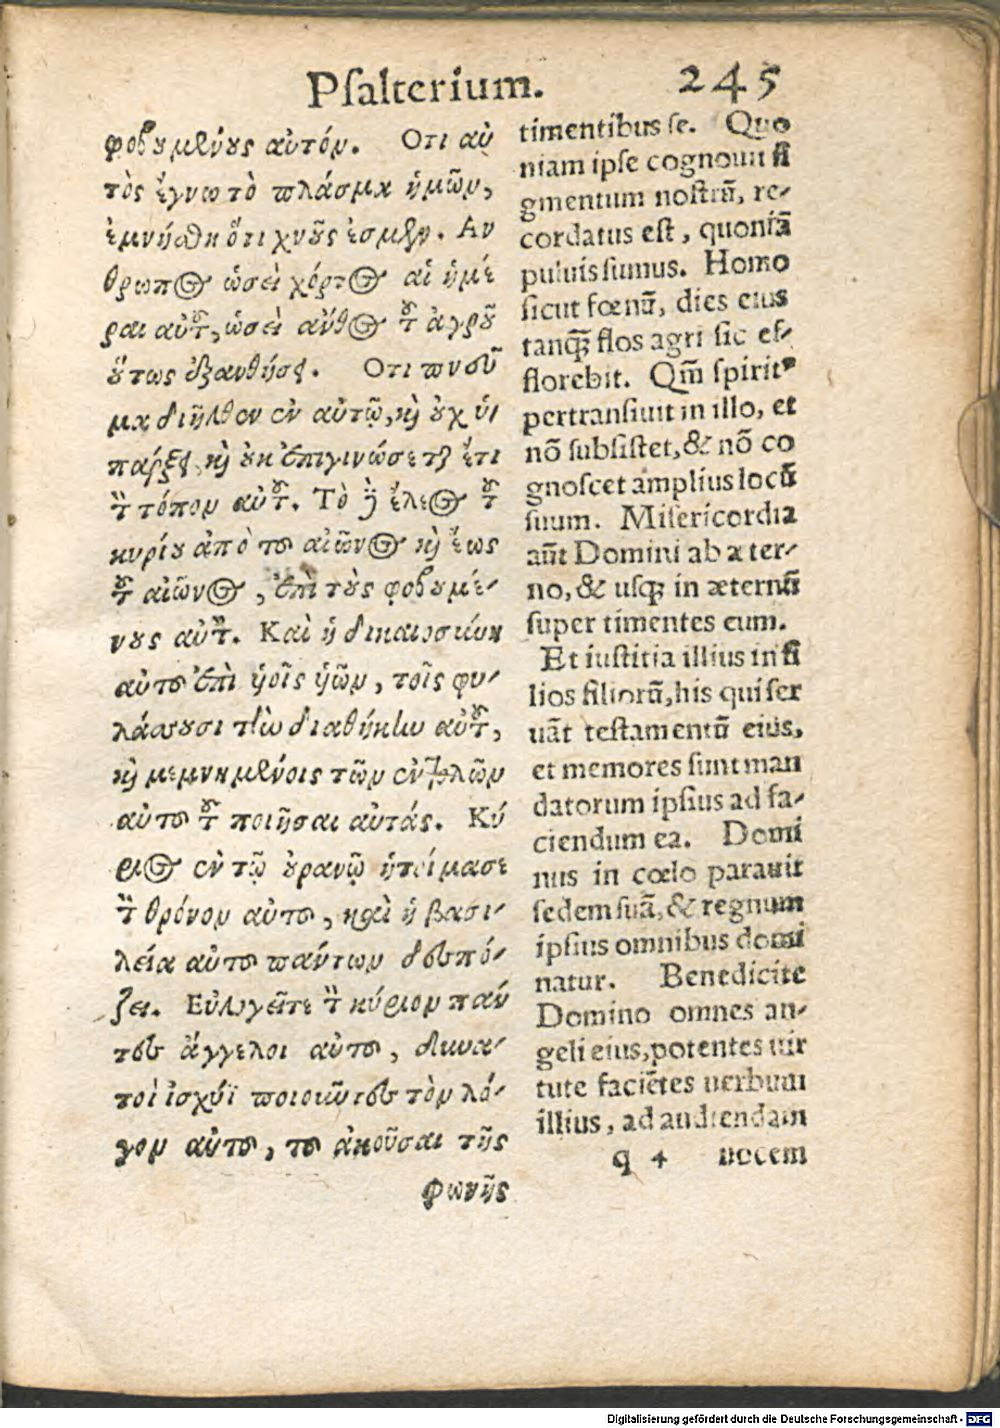 Psalterium. 245
φοβουμένους αὐτόν. Οτι αὐ
τὸς ἔγνω τὸ πλάσμα ἡμῶν,
ἐμνήσθη ὅτι χνοῦς ἐσμεν. Αν
θρωπος ὡσεὶ χόρτος αἱ ἡμέ
ραι αὐτοῦ, ὡσεὶ ἄνθος τοῦ ἀγροῦ
οὕτως ἐξανθήσει. Οτι πνεῦ
μα διῆλθεν ἐν αὐτῷ, καὶ οὐχ ὑ
πάρξει, καὶ οὐκ ἐπιγνώσεται ἔτι
τὸν τόπον αὐτοῦ. Τὸ δὲ ἔλεος τοῦ
κυρίου ἀπὸ τοῦ αἰῶνος καὶ ἕως
τοῦ αἰῶνος, ἐπὶ τοὺς φοβουμέ-
νους αὐτόν. Καὶ ἡ δικαιοσύνη
αὐτοῦ ἐπὶ υἱοῖς υἱῶν, τοῖς φυ-
λάσσουσι τὴν διαθήκην αὐτοῦ,
καὶ μεμνημένοις τῶν ἐντολῶν
αὐτοῦ τοῦ ποιῆσαι αὐτάς. Κύ
ριος ἐν τῷ οὐρανῷ ἡτοίμασε
τὸν θρόνον αὐτοῦ, καὶ ἡ βασι-
λεία αὐτοῦ πάντων δεσπό-
ζει. Εὐλογεῖτε τὸν κύριον πάν
τες ἄγγελοι αὐτοῦ, δυνα-
τοὶ ἰσχύϊ ποιοῦντες τὸν λό-
γον αὐτοῦ, τοῦ ἀκοῦσαι τῆς
φωνῆς
timentibus se. Quo
niam ipse cognouit fi
gmentum nostrũ, re-
cordatus est, quoniã
puluis sumus. Homo
sicut fœnũ, dies eius
tanq̃ flos agri sic ef-
florebit. Qm̃ spirit⁹
pertransiuit in illo, et
nõ subsistet, & nõ co
gnoscet amplius locũ
suum. Misericordia
aũt Domini ab æter-
no, & usq; in æternũ
super timentes eum.
Et iustitia illius in fi
lios filiorũ, his qui ser
uãt testamentũ eius,
et memores sunt man
datorum ipsius ad fa-
ciendum ea. Domi
nus in cœlo parauit
sedem suã, & regnum
ipsius omnibus domi
natur. Benedicite
Domino omnes an-
geli eius, potentes uir
tute faciẽtes uerbum
illius, ad audiendam
q 4 uocem
Digitalisierung gefördert durch die Deutsche Forschungsgemeinschaft - DFG